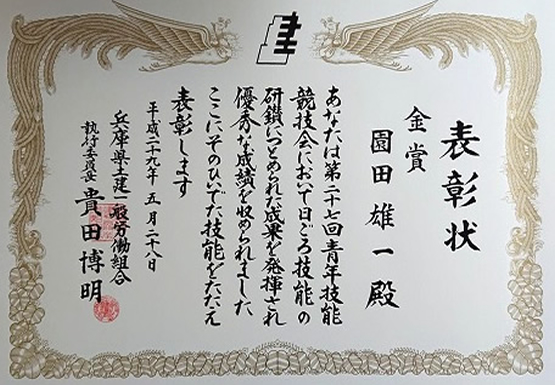 表彰状
金賞
園田雄一殿
あなたは第二十七回青年技能
競技会において日ごろ技能の
研鑚につとめられた成果を発揮され
優秀な成績を収められました
ここにそのひいでた技能をたたえ
表彰します
平成二十九年五月二十八日
兵庫県土建一般労働組合
執行委員長 貴田博明